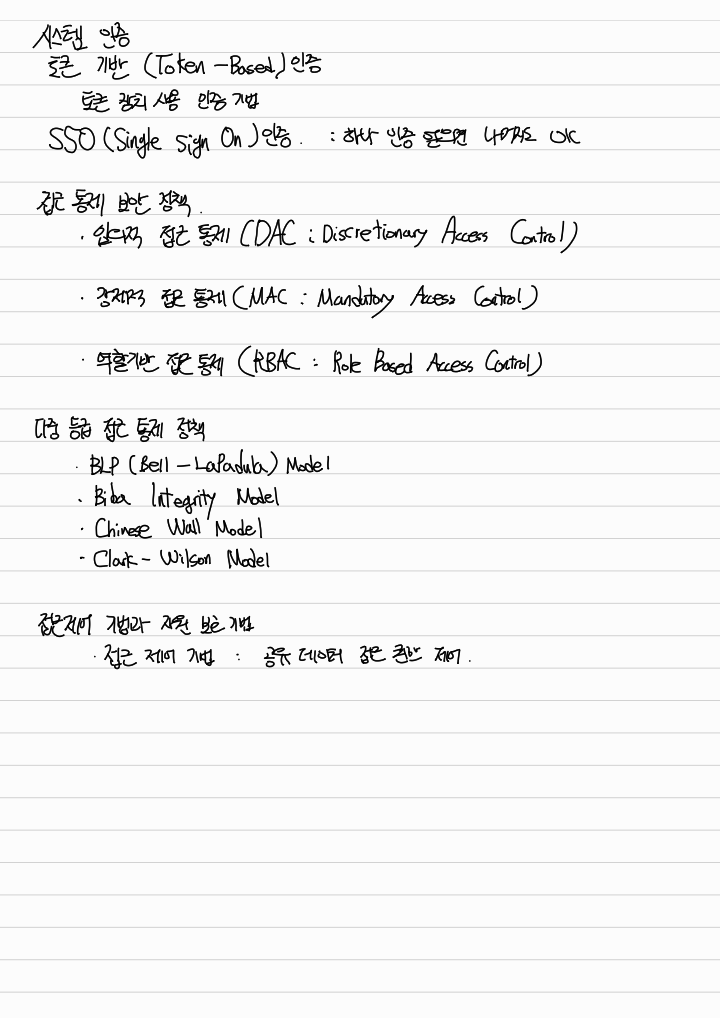 시스템 인증
토큰 기반 (Token-Based) 인증
토큰 장치 사용 인증 기법
SSO (Single Sign On) 인증. : 하나 인증 받으면 나머지도 OK
접근 통제 보안 정책.
· 임의적 접근 통제 (DAC : Discretionary Access Control)
· 강제적 접근 통제 (MAC : Mandutory Access Control)
· 역할기반 접근 통제 (RBAC : Role Based Access Control)
다중 등급 접근 통제 정책
· BLP (Bell-LaPadula) Model
· Biba Integrity Model
· Chinese Wall Model
- Clark-Wilson Model
접근제어 기법과 자원 보호 기법
· 접근 제어 기법 : 공유 데이터 접근 권한 제어.